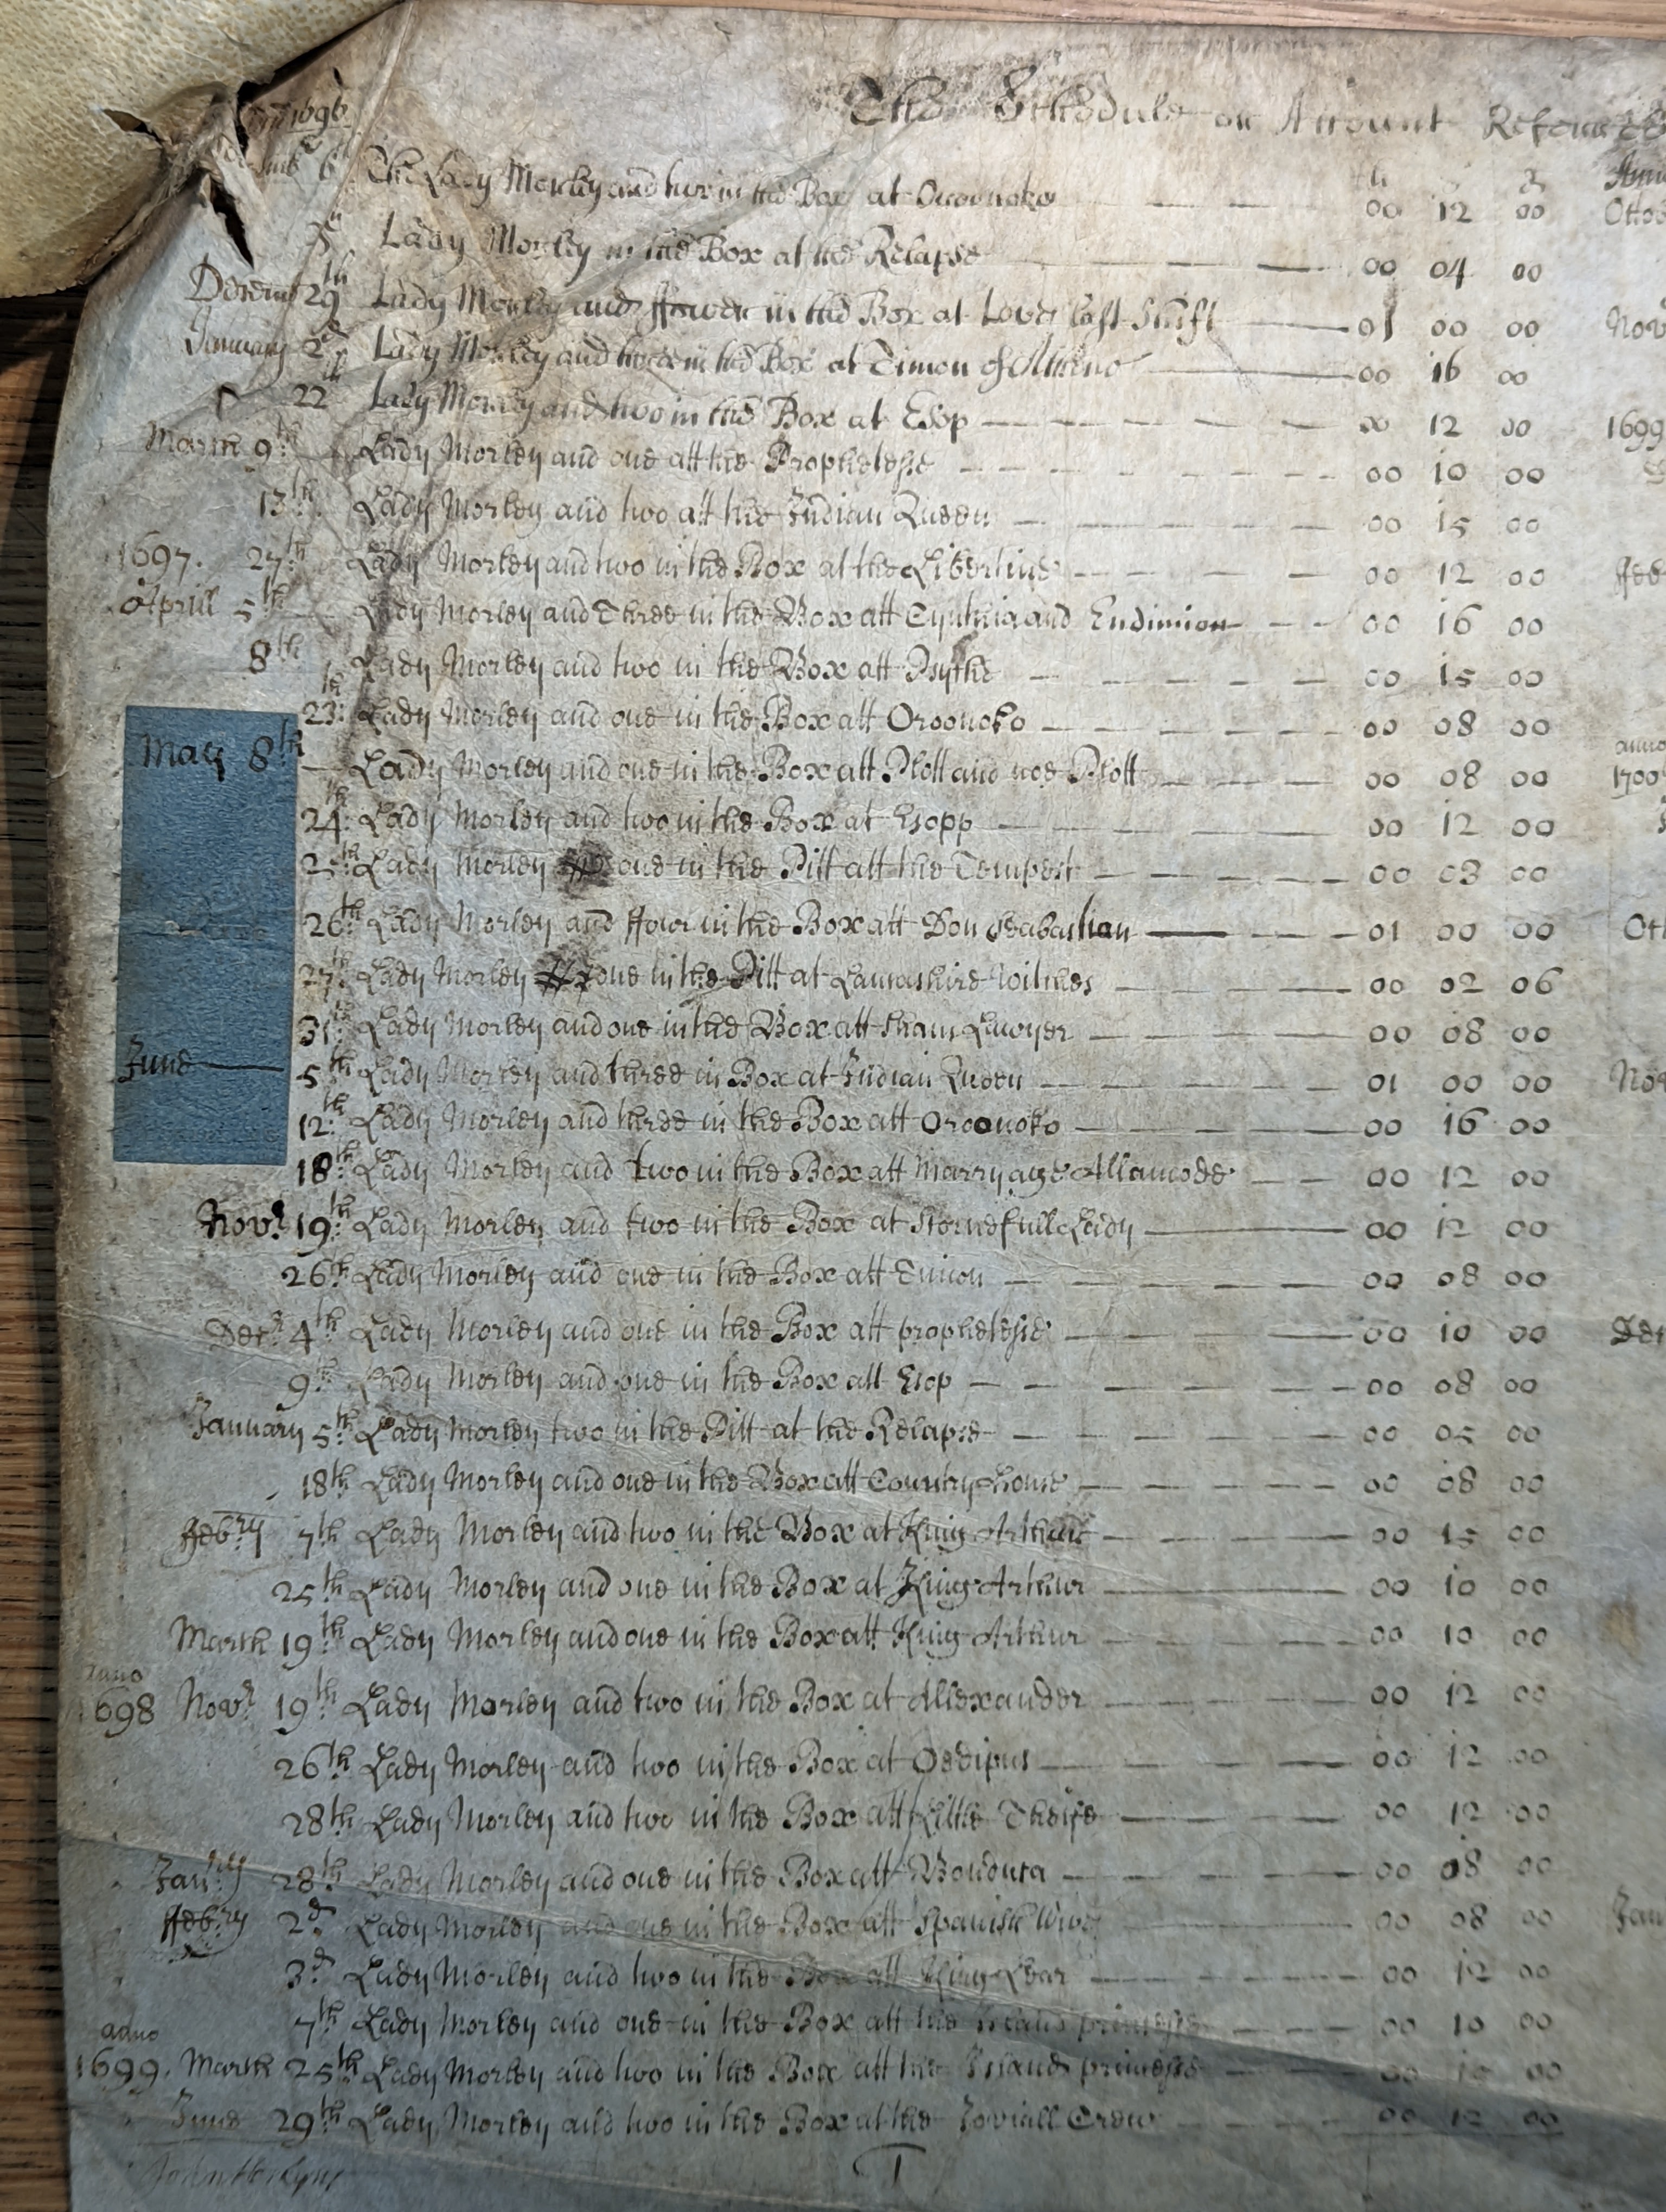 1696
The Schedule or Account
li s d
6 The Lady Morley and two in the Box at Oroonoko 00 12 00 Octo
Lady Morley in the Box at the Relapse 00 04 00
Decem 29th Lady Morley and ffower in the Box at Loves last Shift 01 00 00 Nov
January 2d Lady Morley and three in the Box at Timon of Athens 00 16 00
22th Lady Morley and two in the Box at Esop 00 12 00 1699
March 9th Lady Morley and one att the Prophetesse 00 10 00
13th Lady Morley and two att the Indian Queen 00 15 00
1697. 27th Lady Morley and two in the Box at the Libertine 00 12 00 ffeb
Aprill 5th Lady Morley and Three in the Box att Cynthia and Endimion 00 16 00
8th Lady Morley and two in the Box att Psyche 00 15 00
23th Lady Morley and one in the Box att Oroonoko 00 08 00 anno
May 8th Lady Morley and one in the Box att Plott and noe Plott 00 08 00 1700
24th Lady Morley and two in the Box at Esopp 00 12 00
25th Lady Morley one in the Pitt att the Tempest 00 03 00
26th Lady Morley and ffour in the Box att Don Seabastian 01 00 00 Oct
27th Lady Morley one in the Pitt at Lancashire Witches 00 02 06
31th Lady Morley and one in the Box att Sham Lawyer 00 08 00
June 5th Lady Morley and three in Box at Indian Queen 01 00 00 Nov
12th Lady Morley and three in the Box att Oroonoko 00 16 00
18th Lady Morley and two in the Box att Marryage Allamode 00 12 00
Novr 19th Lady Morley and two in the Box at Scornefull Lady 00 12 00
26th Lady Morley and one in the Box att Timon 00 08 00
Decr 4th Lady Morley and one in the Box att prophetesse 00 10 00 Dec
9th Lady Morley and one in the Box att Esop 00 08 00
January 5th Lady Morley two in the Pitt at the Relapse 00 05 00
18th Lady Morley and one in the Box att Country House 00 08 00
ffebry 7th Lady Morley and two in the Box at King Arthur 00 15 00
25th Lady Morley and one in the Box at King Arthur 00 10 00
March 19th Lady Morley and one in the Box att King Arthur 00 10 00
anno
1698 Novr 19th Lady Morley and two in the Box at Allexander 00 12 00
26th Lady Morley and two in the Box at Oedipus 00 12 00
28th Lady Morley and two in the Box att Little Theife 00 12 00
Janry 28th Lady Morley and one in the Box att Bonduca 00 08 00
ffebry 2d Lady Morley and one in the Box att Spanish Wives 00 08 00 Jan
3d Lady Morley and two in the Box att King Lear 00 12 00
7th Lady Morley and one in the Box att the Island princesse 00 10 00
anno
1699. March 25th Lady Morley and two in the Box att the Island princesse 00
June 29th Lady Morley and two in the Box at the Joviall Crew 00 12 00